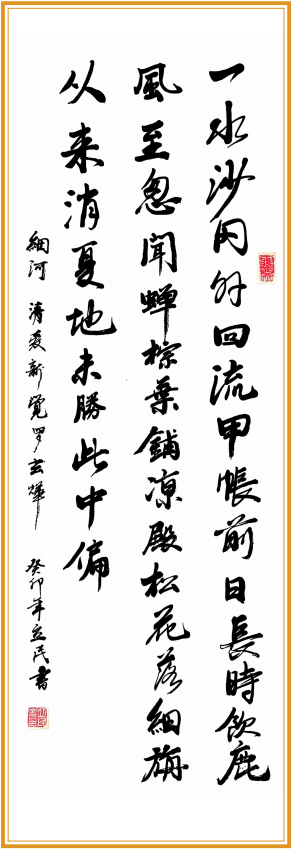 一水沙内外回流甲帳前日長時飲鹿
風至忽聞蟬棕葉鋪凉殿松花落細旃
从来消夏地未勝此中偏
細河 清愛新覺罗玄燁 癸卯年立民書